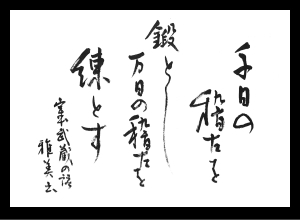 千日の
稽古を
鍛とし
万日の稽古を
練とす
宮本武蔵の語
雅美書